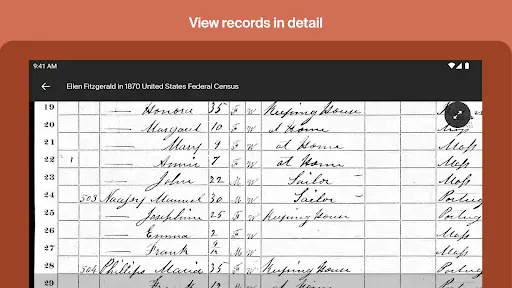 View records in detail
9:41 AM
Ellen Fitzgerald in 1870 United States Federal Census
19 — Honora 35 F W Keeping House
20 — Margaret 10 F W at Home Mass
21 — Mary 9 F W at Home Mass
22 1 — Annie 7 F W at Home Mass
23 — John 22 M W Sailor Mass
24 503 Manuel 30 M W Sailor Portug
25 — Josephine 25 F W Keeping House Portug
26 — Emma 2 F W Mass
27 — Frank M W Mass
28 504 Phillips Maria 35 F W Keeping House Portug
29 — Frank 12 M W